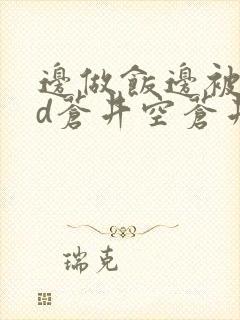 邊做飯邊被
d蒼井空蒼井
瑞克